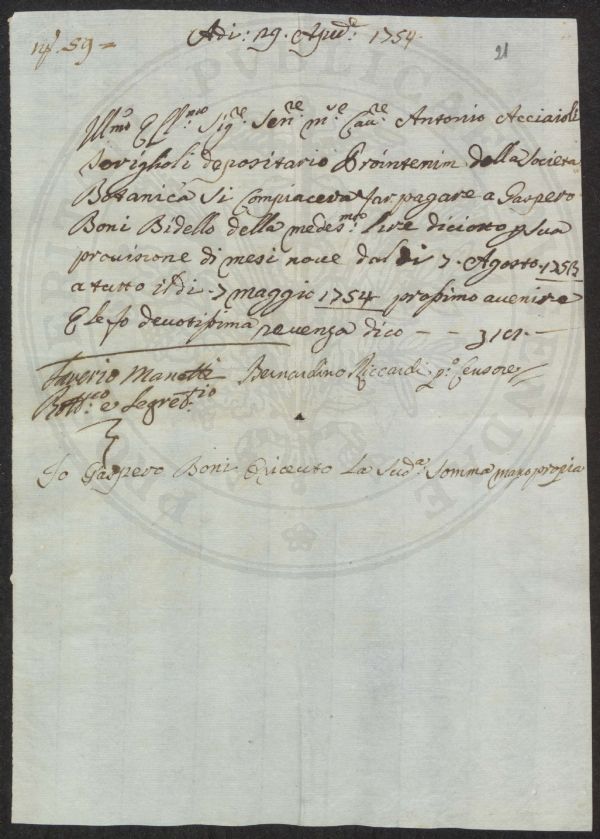 Nº. 59 =
Adi: 29. Aple: 1754.
21
Illmo E Clmo Sigre Senre Mse Cavre Antonio Acciaioli
Toriglioli depositario Prointerim della Società
Botanica Si Compiacera far pagare a Gaspero
Boni Bidello della medesma lire diciotto p sua
provisione di mesi nove dal di 7. Agosto 1753
a tutto il di 7 maggio 1754 prossimo avenire
E le fo devotissima revenza dico - - 18 -
Saverio Manetti Bernardino Riccardi po Censore
Bottco e Segretrio
Io Gaspero Boni O riceuto La Suda Somma mano propia
PRO PUBLICAE